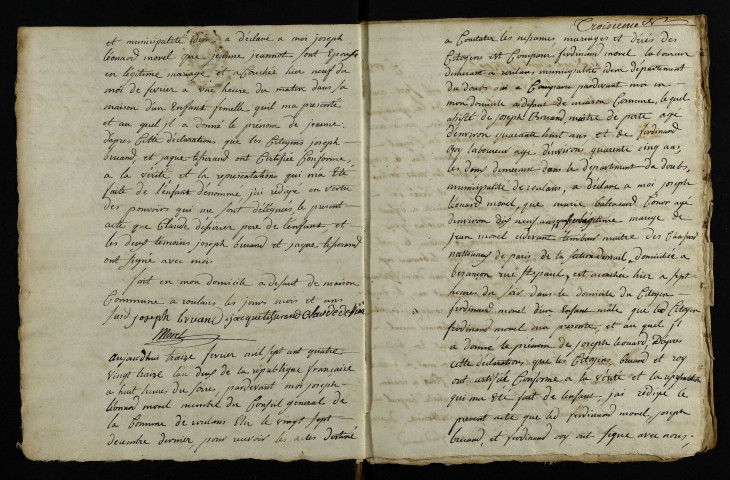 et municipalité idem, a déclaré a moi joseph
léonard morel que jeanne jeannot sont Epouse
en légitime mariage et accouchée hier neuf du
mois de fevrier a une heure du matin dans sa
maison d'un Enfant femelle quil ma presenté
et au quel jl a donné le prénom de jeanne:
dapres Cette déclarations que les Citoyens joseph
bruand, et jaque tisserand ont Certifiée Conforme,
a la vérité et la representations qui ma Eté
faite de l'enfant dénommé, j'ai redigé en vertu
des pouvoirs qui me sont délégués, le present
acte que Claude pere de l'enfant et
les deux temoins joseph bruand et jaque tisserand
ont signé avec moi
fait en mon domicile a defaut de maison
Commune a roulans les jours mois et ans
susd joseph bruand jacque tisserand Claude
Morel
aujourdhui traize fevrier mil sept cent quatre
vingt traize lan deux de la république française
a huit heures du soire, pardevant moi joseph
léonard morel membre du Conseil general de
la Commune de roulans Elu le vingt sept
decembre dernier, pour recevoir les actes destiné
Troisieme
a Constater les naissances, mariages et décés des
Citoyens est Comparu ferdinand morel laboureur
demeurant a roulans municipalité idem departement
du doubs où a Comparu pardevant moi en
mon domicile a défaut de maison Commune, lequel
assisté de joseph Bruand maitre de poste age
d'environ quarante huit ans et de ferdinand
roy laboureur agé d'environ quarente cinq ans,
les deux demeurant dans le departement du doubs
municipalité de roulans, a déclaré a moi joseph
léonard morel, que marie agé
denviron dix neuf ans en legitime mariage de
jean morel cidevant maitre des Chasseurs
de paris de la section domicilié a
besançon rue St paul, est accouchée hier a sept
heures du soir dans le domicile du Citoyen
ferdinand morel d'un Enfant male que led Citoyen
ferdinand morel ma presenté, et au quel jl
a donné le prenom de joseph leonard, Dapres
cette déclaration que les Citoyens bruand et roy
ont certifié Conforme a la vérité et la representation
qui ma Eté fait de lenfant, j'ai redigé le
present acte que led ferdinand morel joseph
bruand, et ferdinand roy ont signé avec nous,